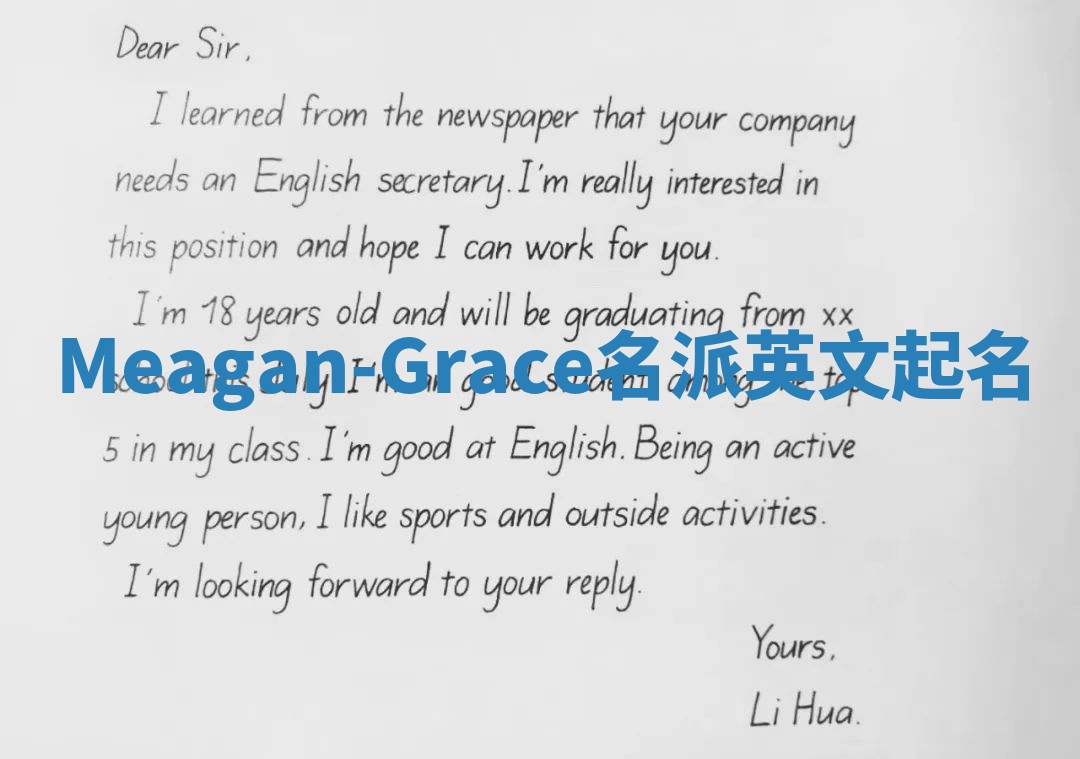 Dear Sir,
I learned from the newspaper that your company
needs an English secretary. I'm really interested in
this position and hope I can work for you.
I'm 18 years old and will be graduating from xx
Meagan-Grace名派英文起名
school this July. I'm an good student among the top
5 in my class. I'm good at English. Being an active
young person, I like sports and outside activities.
I'm looking forward to your reply.
Yours,
Li Hua.